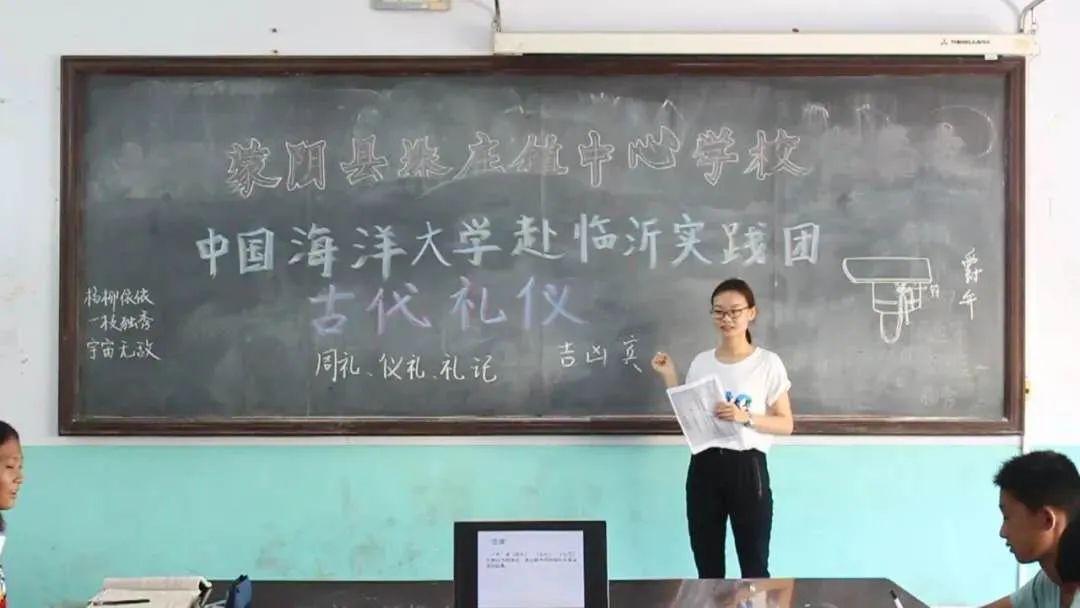 蒙阴县垛庄镇中心学校
中国海洋大学赴临沂实践团
古代礼仪
杨柳依依
一枝独秀
宇宙无敌
周礼、仪礼、礼记
吉凶宾